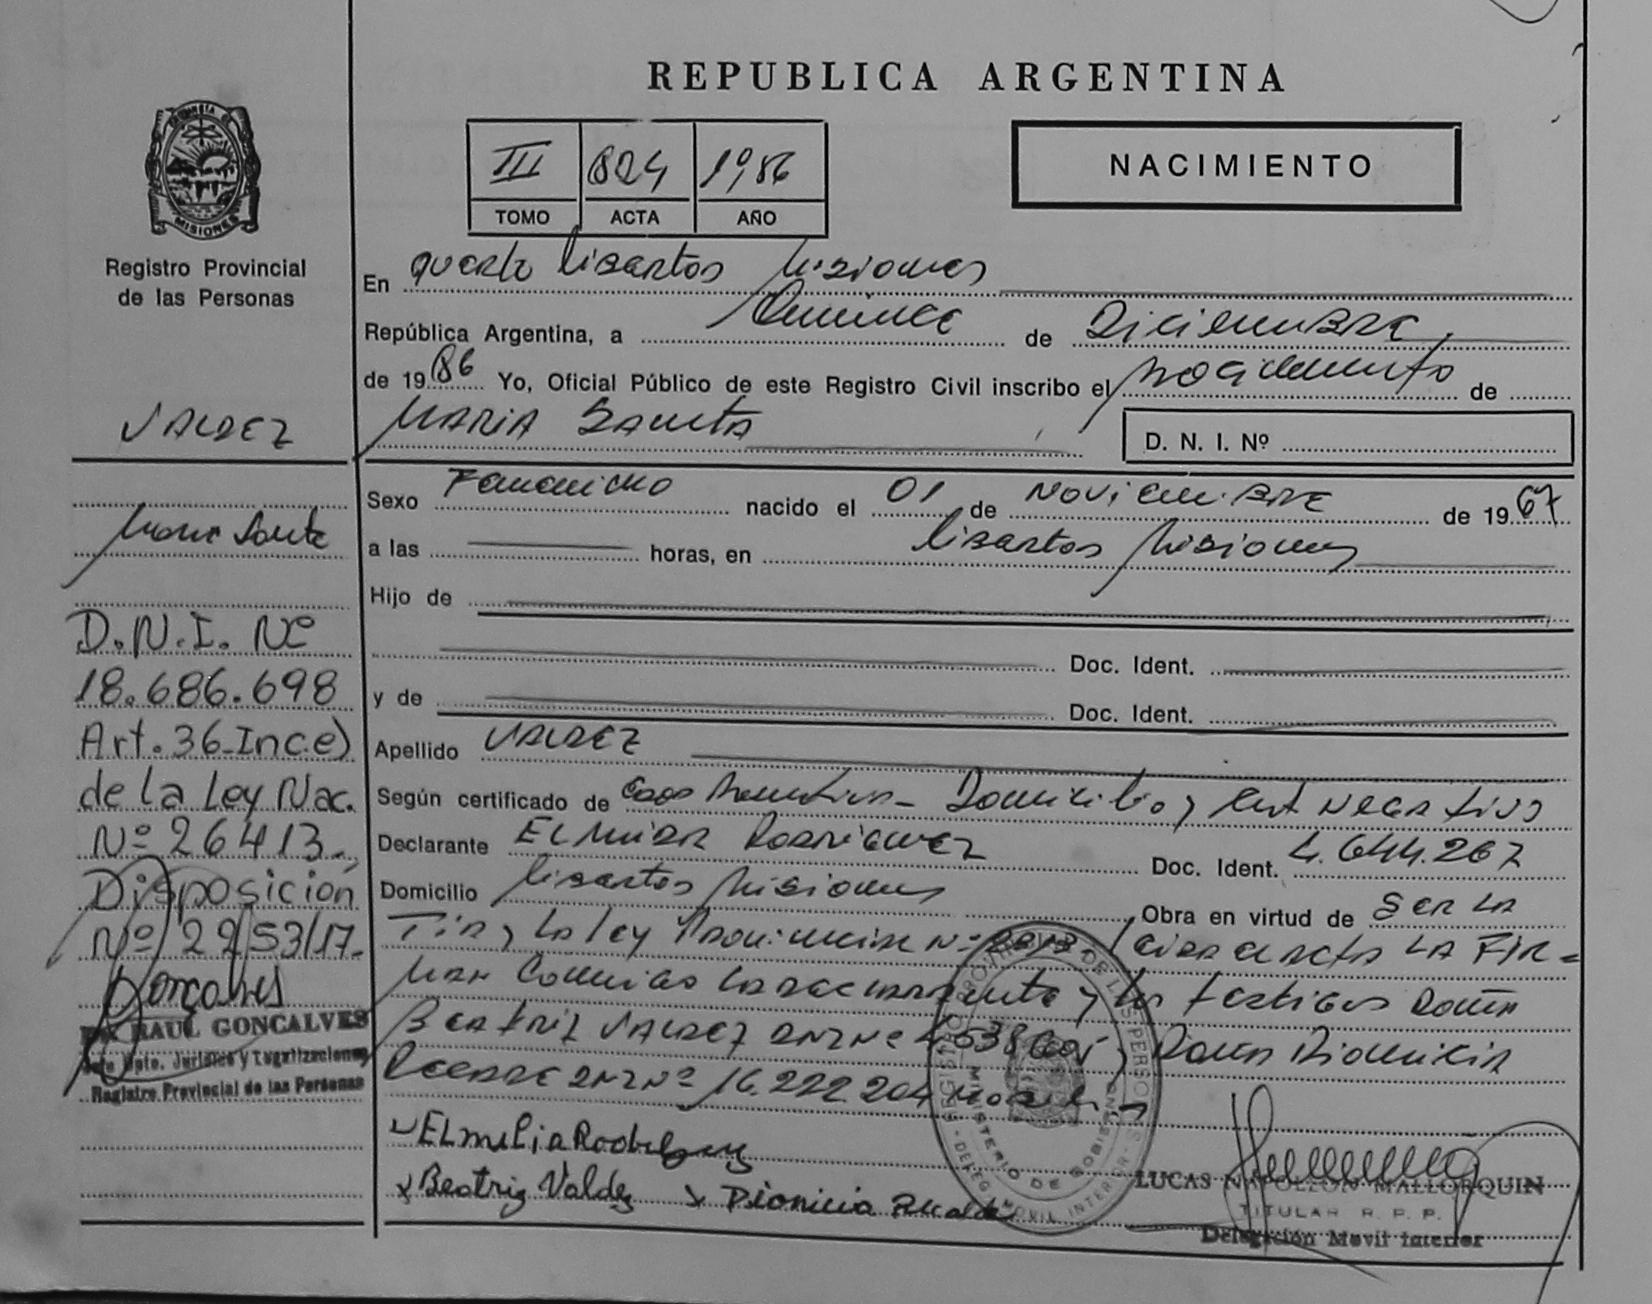 REPUBLICA ARGENTINA
III 824 1986
TOMO ACTA AÑO
NACIMIENTO
MISIONES
Registro Provincial
de las Personas
VALDEZ
Maria Santa
D.N.I. Nº
18.686.698
Art. 36-Inc.e)
de la Ley Nac.
Nº 26413.-
Disposición
Nº 2953/17.-
RAUL GONCALVES
Dpto. Jurídico y Legalizaciones
Registro Provincial de las Personas
En puerto Libertad Misiones
República Argentina, a Quince de Diciembre
de 1986 Yo, Oficial Público de este Registro Civil inscribo el nacimiento de
MARIA SANTA D. N. I. Nº
Sexo Femenino nacido el 01 de Noviembre de 1967
a las horas, en Libertad Misiones
Hijo de
Doc. Ident.
y de Doc. Ident.
Apellido VALDEZ
Según certificado de Domicilio y NEGATIVO
Declarante RODRIGUEZ Doc. Ident. 4.644.267
Domicilio Libertad Misiones Obra en virtud de SER LA
TIA y la ley Provincial Nº LA FIR-
MAN conmigo la declarante y los testigos Doña
BEATRIZ VALDEZ DNI Nº Doña Dionicia
DNI Nº 16.222.204
Beatriz Valdez Dionicia
LUCAS NAPOLEON MALLORQUIN
TITULAR R. P. P.
Delegación Movil Interior
MINISTERIO DE GOBIERNO